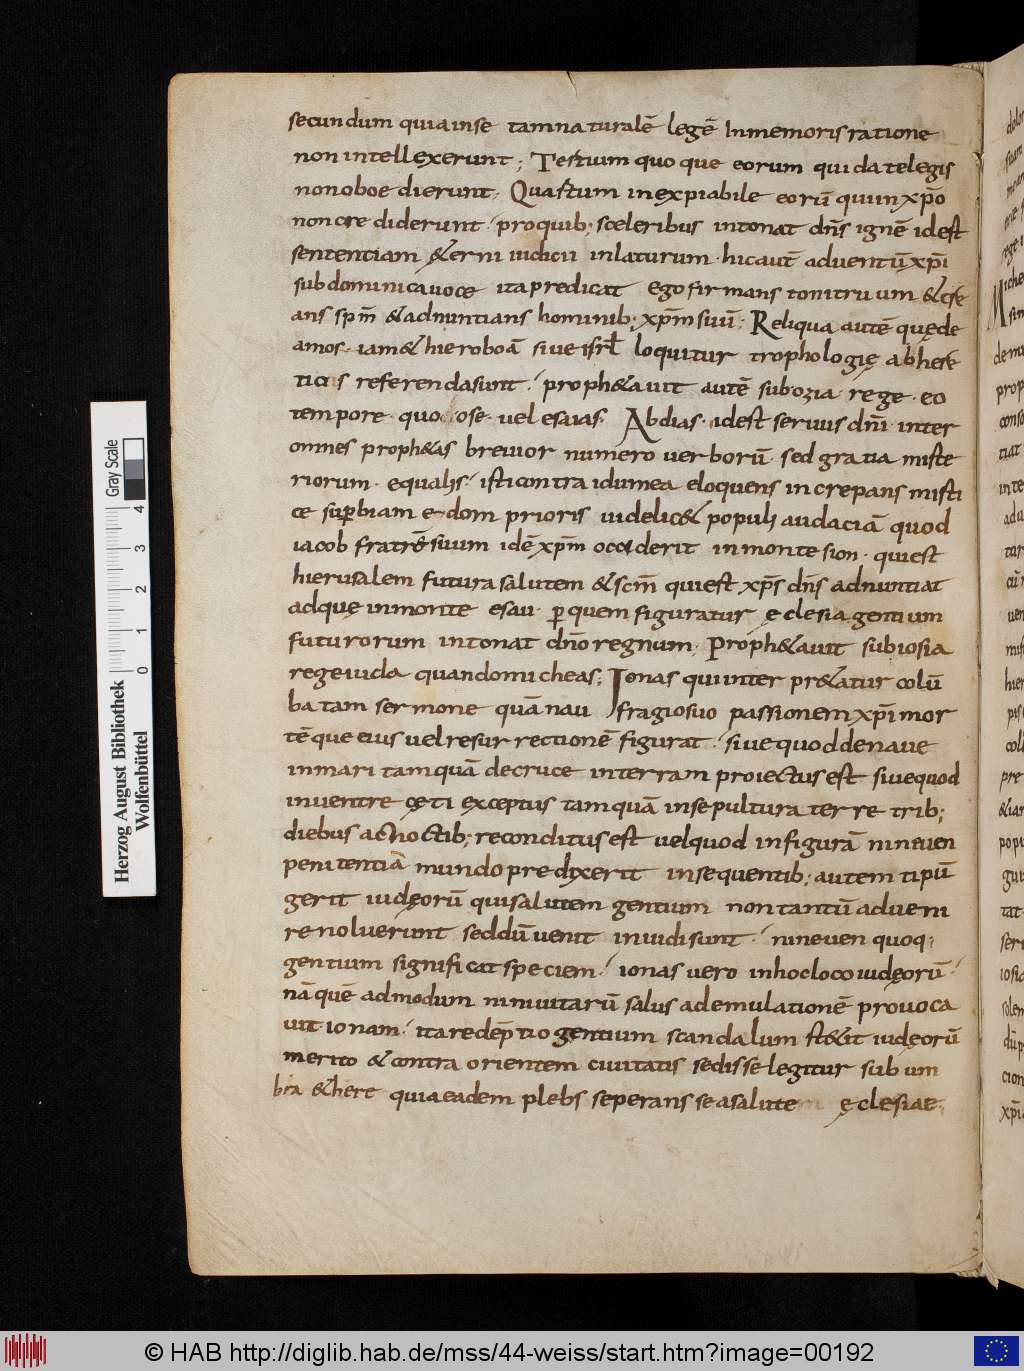 secundum quia inse tam naturalē legē Inmemoris ratione
non intellexerunt; Testium quoque eorum quida te legis
non oboedierunt· Quartum inexpiabile eorū quiin xp̄o
non crediderunt· pro quib; sceleribus intonat dn̄s ignē idest
sententiam &erni iudicii inlaturum· hic autē aduentū xp̄i
sub dominica uoce ita predicat ego firmans tonitruum & cre
ans sp̄m & adnuntians hominib; xp̄m suū; Reliqua autē quęde
amos· iam & hieroboā siue isrl̄ loquitur trophologię ab here
ticis referenda sunt· proph&auit autē sub ozia rege· eo
tempore quo ose uel esaias· Abdias· idest seruus dn̄i· inter
omnes proph&as breuior numero uerborū· sed gratia miste
riorum· equalis· isti contra idumea eloquens increpans misti
ce sup̄biam edom prioris uidelic& populi audaciā quod
iacob fratrē suum idē xp̄m occiderit in monte sion· qui est
hierusalem futura salutem & sc̄m qui est xp̄s dn̄s adnuntiat
adquę in monte esau· p̄ quem figuratur ęclesia gentium
futurorum intonat dn̄o regnum; Proph&auit sub iosia
rege iuda quando micheas; Ionas qui inter pr&atur colū
ba tam sermone quā nau fragio suo passionem xp̄i mor
tē que eius uel resurrectionē figurat· siue quod de naue
in mari tamquā de cruce in terram proiectus est siue quod
in uentre cęti exceptus tamquā in sepultura terre trib;
diebus ac noctib; reconditus est uel quod in figurā nineuen
penitentiā mundo predixerit in sequentib; autem tipū
gerit iudęorū qui salutem gentium non tantū adueni
re noluerunt sed dū uenit inuidi sunt· nineuen quoq;
gentium significat speciem· ionas uero in hoc loco iudęorū·
nā quē admodum niniuitarū salus ad emulationē prouoca
uit ionam· ita redēptio gentium scandalum st&it iudęorū
merito & contra orientem ciuitatis sedisse legitur sub um
bra & here quia eadem plebs seperans se a salutem ęclesiae;
Herzog August Bibliothek
Wolfenbüttel
0 1 2 3 4
Gray Scale
© HAB http://diglib.hab.de/mss/44-weiss/start.htm?image=00192